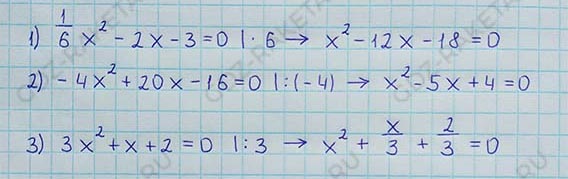 1) 1/6 x² - 2x - 3 = 0 | · 6 → x² - 12x - 18 = 0
2) - 4x² + 20x - 16 = 0 | : (-4) → x² - 5x + 4 = 0
3) 3x² + x + 2 = 0 | : 3 → x² + x/3 + 2/3 = 0